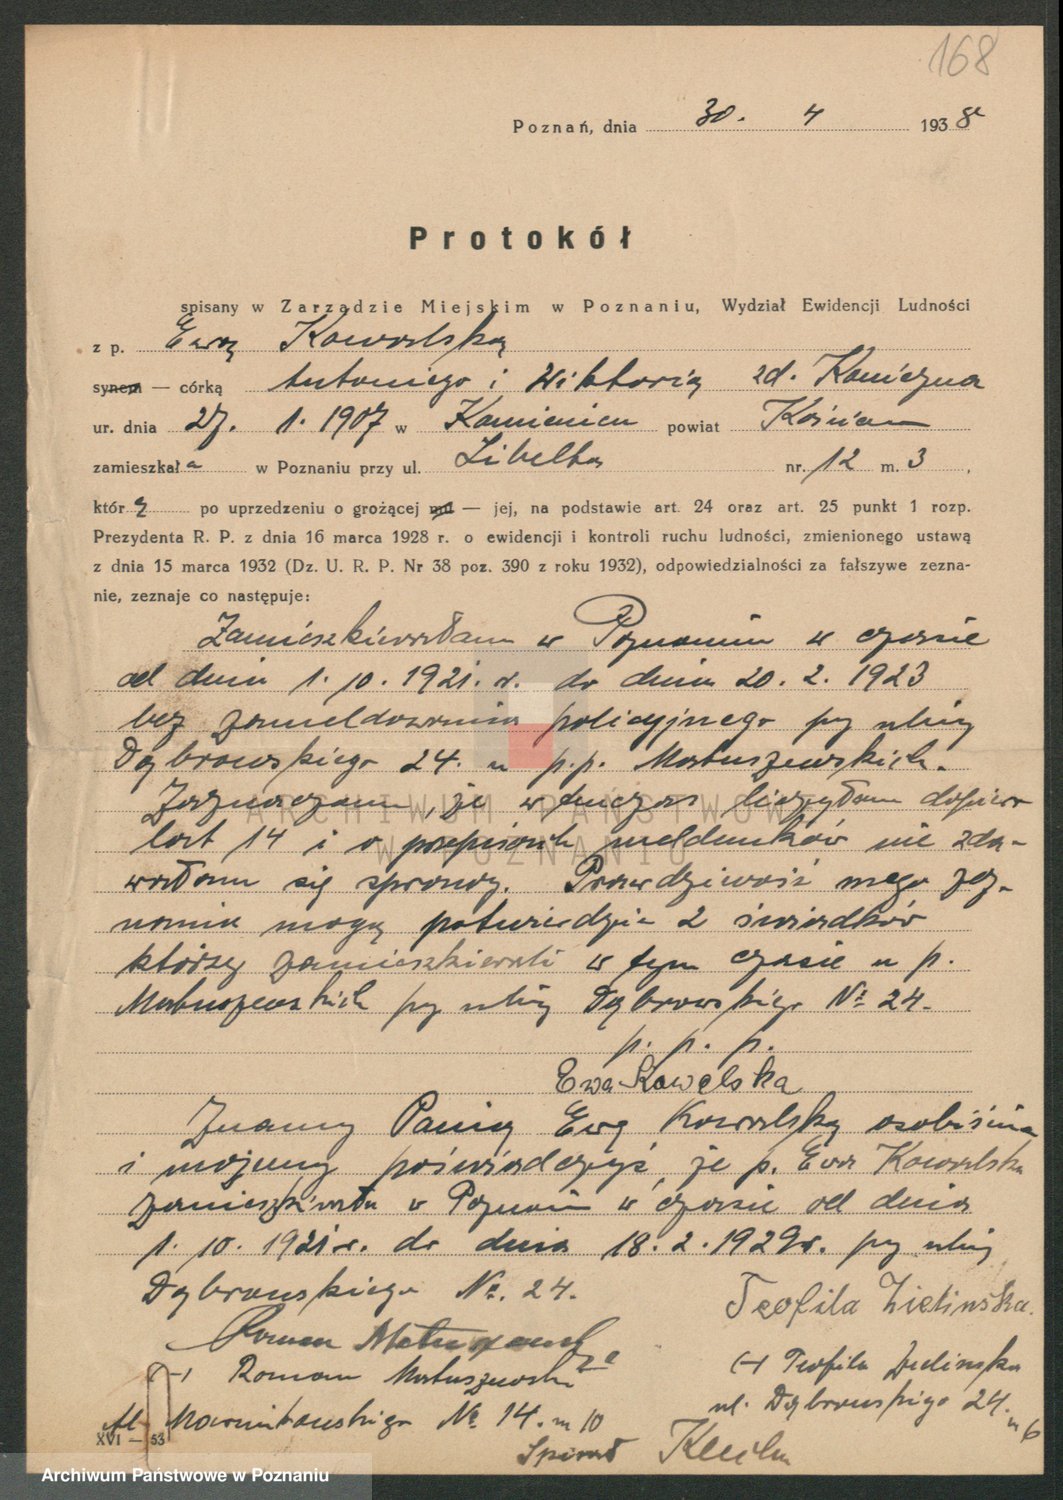 168
Poznań, dnia 30. 4 1938 r
Protokół
spisany w Zarządzie Miejskim w Poznaniu, Wydział Ewidencji Ludności
z p. Ewą Kowalską
synem — córką Antoniego i Wiktorią zd. Konieczna
ur. dnia 27. 1. 1907 w Kamienicu powiat Kościan
zamieszkała w Poznaniu przy ul. Libelta nr. 12 m. 3,
któr ą po uprzedzeniu o grożącej mu — jej, na podstawie art. 24 oraz art. 25 punkt 1 rozp.
Prezydenta R. P. z dnia 16 marca 1928 r. o ewidencji i kontroli ruchu ludności, zmienionego ustawą
z dnia 15 marca 1932 (Dz. U. R. P. Nr 38 poz. 390 z roku 1932), odpowiedzialności za fałszywe zezna-
nie, zeznaje co następuje:
Zamieszkiwałam w Poznaniu w czasie
od dnia 1. 10. 1921. r. do dnia 20. 2. 1923
bez zameldowania policyjnego przy ulicy
Dąbrowskiego 24. u p.p. Matuszewskich.
Zaznaczam, że wtenczas liczyłam dopiero
lat 14 i o przepisach meldunków nie zda-
wałam się sprawy. Prawdziwość mego zez-
nania mogą potwierdzić 2 świadków
którzy zamieszkiwali w tym czasie u p.
Matuszewskich przy ulicy Dąbrowskiego No 24.
p. p. p.
Ewa Kowalska
Znamy Panią Ewę Kowalską osobiście
i możemy poświadczyć, że p. Ewa Kowalska
zamieszkiwała w Poznaniu w czasie od dnia
1. 10. 1921 r. do dnia 18. 2. 1929 r. przy ulicy
Dąbrowskiego No. 24.
Teofila Zielińska.
Roman
(-) Roman Matuszewski
(-) Teofila Zielińska
ul. Dąbrowskiego 24. m 6
Al. Marcinkowskiego No. 14. m 10
Spisał
XVI — 53
ARCHIWUM PAŃSTWOWE
W POZNANIU
Archiwum Państwowe w Poznaniu